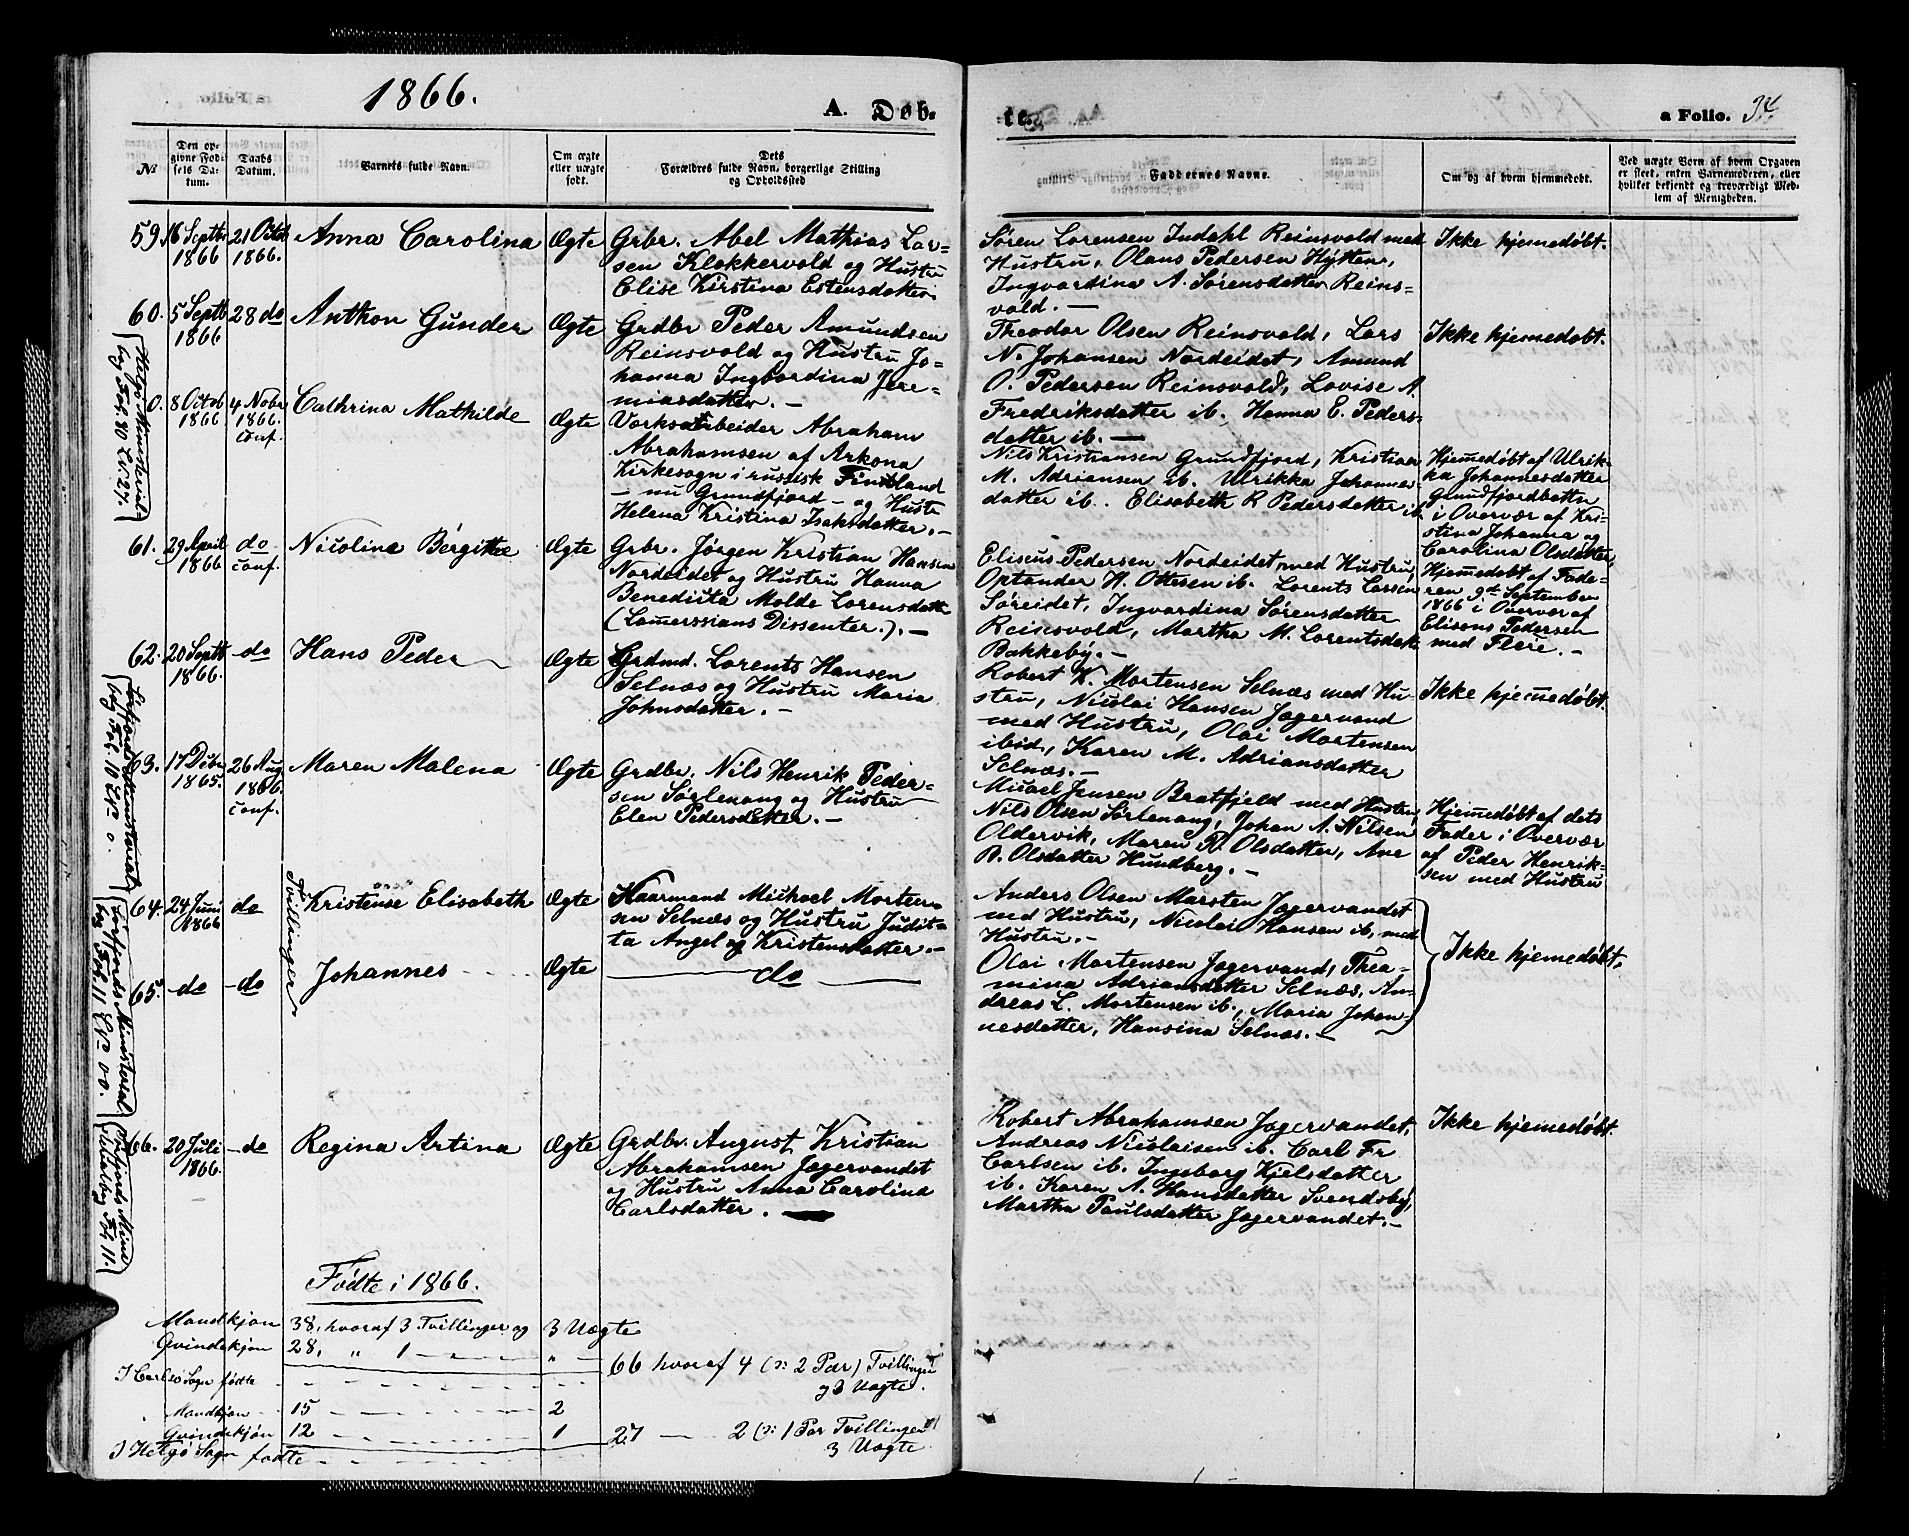 1866.
A. Døb-
te.
a Folio. 34.
№
Den op-
givne Fød-
sels Da-
tum.
Daabs
Datum.
Barnets fulde Navn.
Om ægte
eller uægte
født.
Dets
Forældres fulde Navn, borgerlige Stilling
og Opholdssted
Faddernes Navne.
Om og af hvem hjemmedøbt.
Ved uægte Børn af hvem Opgaven
er skeet, enten Barnemoderen, eller
hvilket bekjendt og troværdigt Med-
lem af Menigheden.
59. 16 Septbr 1866 21 Octob 1866. Anna Carolina Ægte
Grbr. Abel Mathias Lar-
sen Klokkervold og Hustru
Elise Kirstina Estensdatter.
Søren Lorensen Indahl Reinsvold med
Hustru, Olaus Pedersen Hytten,
Ingvardina A. Sørensdatter Reins-
vold. —
Ikke hjemedøbt.
60. 5 Septb 1866 28 do Anthon Gunder Ægte
Grdbr Peder Amundsen
Reinsvold og Hustru Jo-
hanna Ingvardina Jere-
miasdatter. —
Theodor Olsen Reinsvold, Lars
N. Johansen Nordeidet, Amund
O. Pedersen Reinsvold, Lovise A.
Fredriksdatter ib. Hanna E. Peders-
datter ib. —
Ikke hjemedøbt.
0. 8 Octob 1866 4 Nobr 1866. conf. Cathrina Mathilde Ægte
Værksarbeider Abraham
Abrahamsen af Arkona
Kirkesogn i russisk Finnland
— nu Grundfjord — og Hustr
Helena Kristina Isaksdatter. —
Nils Kristiansen Grundfjord, Kristian
M. Adriansen ib. Ulrikka Johannes-
datter ib. Elisabeth R Pedersdatter ib.
Hjemedøbt af Ulrik-
ka Johannesdatter
Grundfjordbotten
i Overvær af Kri-
stina Johanna og
Carolina Olsdatter,
Helgø Ministerial
bog Fol. 80 № 27.
61. 29 April 1866 do conf. Nicoline Bergitte Ægte
Grbr. Jørgen Kristian Hansen
Nordeidet og Hustru Hanna
Benedicta Molde Lorensdatt
(Lamerssians Dissenter.). —
Eliseus Pedersen Nordeidet med Hustru,
Optander W. Ottesen ib. Lorents Larsen
Søreidet, Ingvardina Sørensdatter
Reinsvold, Martha M. Lorentsdatt
Bakkeby. —
Hjemedøbt af Fade-
ren 9de September
1866 i Overvær af
Eliseus Pedersen
med Flere. —
62. 20 Septb 1866. — do Hans Peder Ægte
Grdmd. Lorents Hansen
Selnæs og Hustru Maria
Johnsdatter. —
Robert K. Mortensen Selnæs med Hu-
stru, Nicolai Hansen Jægervand
med Hustru, Olai Mortensen
ibid, Karen M. Adriansdatter
Selnæs. —
Ikke hjemedøbt.
63. 17 Dcbr 1865. 26 Aug 1866. conf. Maren Malena Ægte
Grdbr. Nils Henrik Peder-
sen Sørlenang og Hustru
Elen Pedersdatter. —
Micael Jensen Bratfjeld med Hustru,
Nils Olsen Sørlenang, Johan A. Nilsen
Oldervik, Maren B. Olsdatter, Ane
B. Olsdatter Hundberg. —
Hjemedøbt af dets
Fader i Overvær
af Peder Henrik-
sen med Hustru
64. 24 Juni 1866 do Kristense Elisabeth Ægte
Tvillinger
Haarmand Michael Morten-
sen Selnæs og Hustru Judit-
ta Angel og Kristensdatter. —
Anders Olsen Marsten Jægervandet
med Hustru, Nicolai Hansen ib, med
Hustru. —
Ikke hjemedøbt.
65. — do — do Johannes Ægte — do —
Olai Mortensen Jægervand, Thea-
mina Adriansdatter Selnæs, An-
dreas L. Mortensen ib., Maria Johan-
nesdatter, Hansina Selnæs. —
66. 20 Juli 1866. — do Regina Artina Ægte
Grdbr. August Kristian
Abrahamsen Jægervandet
og Hustru Anna Carolina
Carlsdatter.
Robert Abrahamsen Jægervandet,
Andreas Nicolaisen ib. Carl Fr
Carlsen ib. Ingeborg Kjelsdatter
ib. Karen A. Hansdatter Svendsby,
Martha Paulsdatter Jægervandet. —
Ikke hjemedøbt.
Fødte i 1866.
Mandkjøn 38, hvoraf 3 Tvillinger og 3 Uægte
Qvindekjøn 28, " 1 — " —
I Carlsø Sogn fødte 66 hvoraf 4 (ɔ: 2 Par) Tvillinger
og 3 Uægte.
Mandkjøn 15 2
Qvindekjøn 12 1
I Helgø Sogn fødte 27 — 2 (ɔ: 1 Par Tvillinger
3 Uægte.